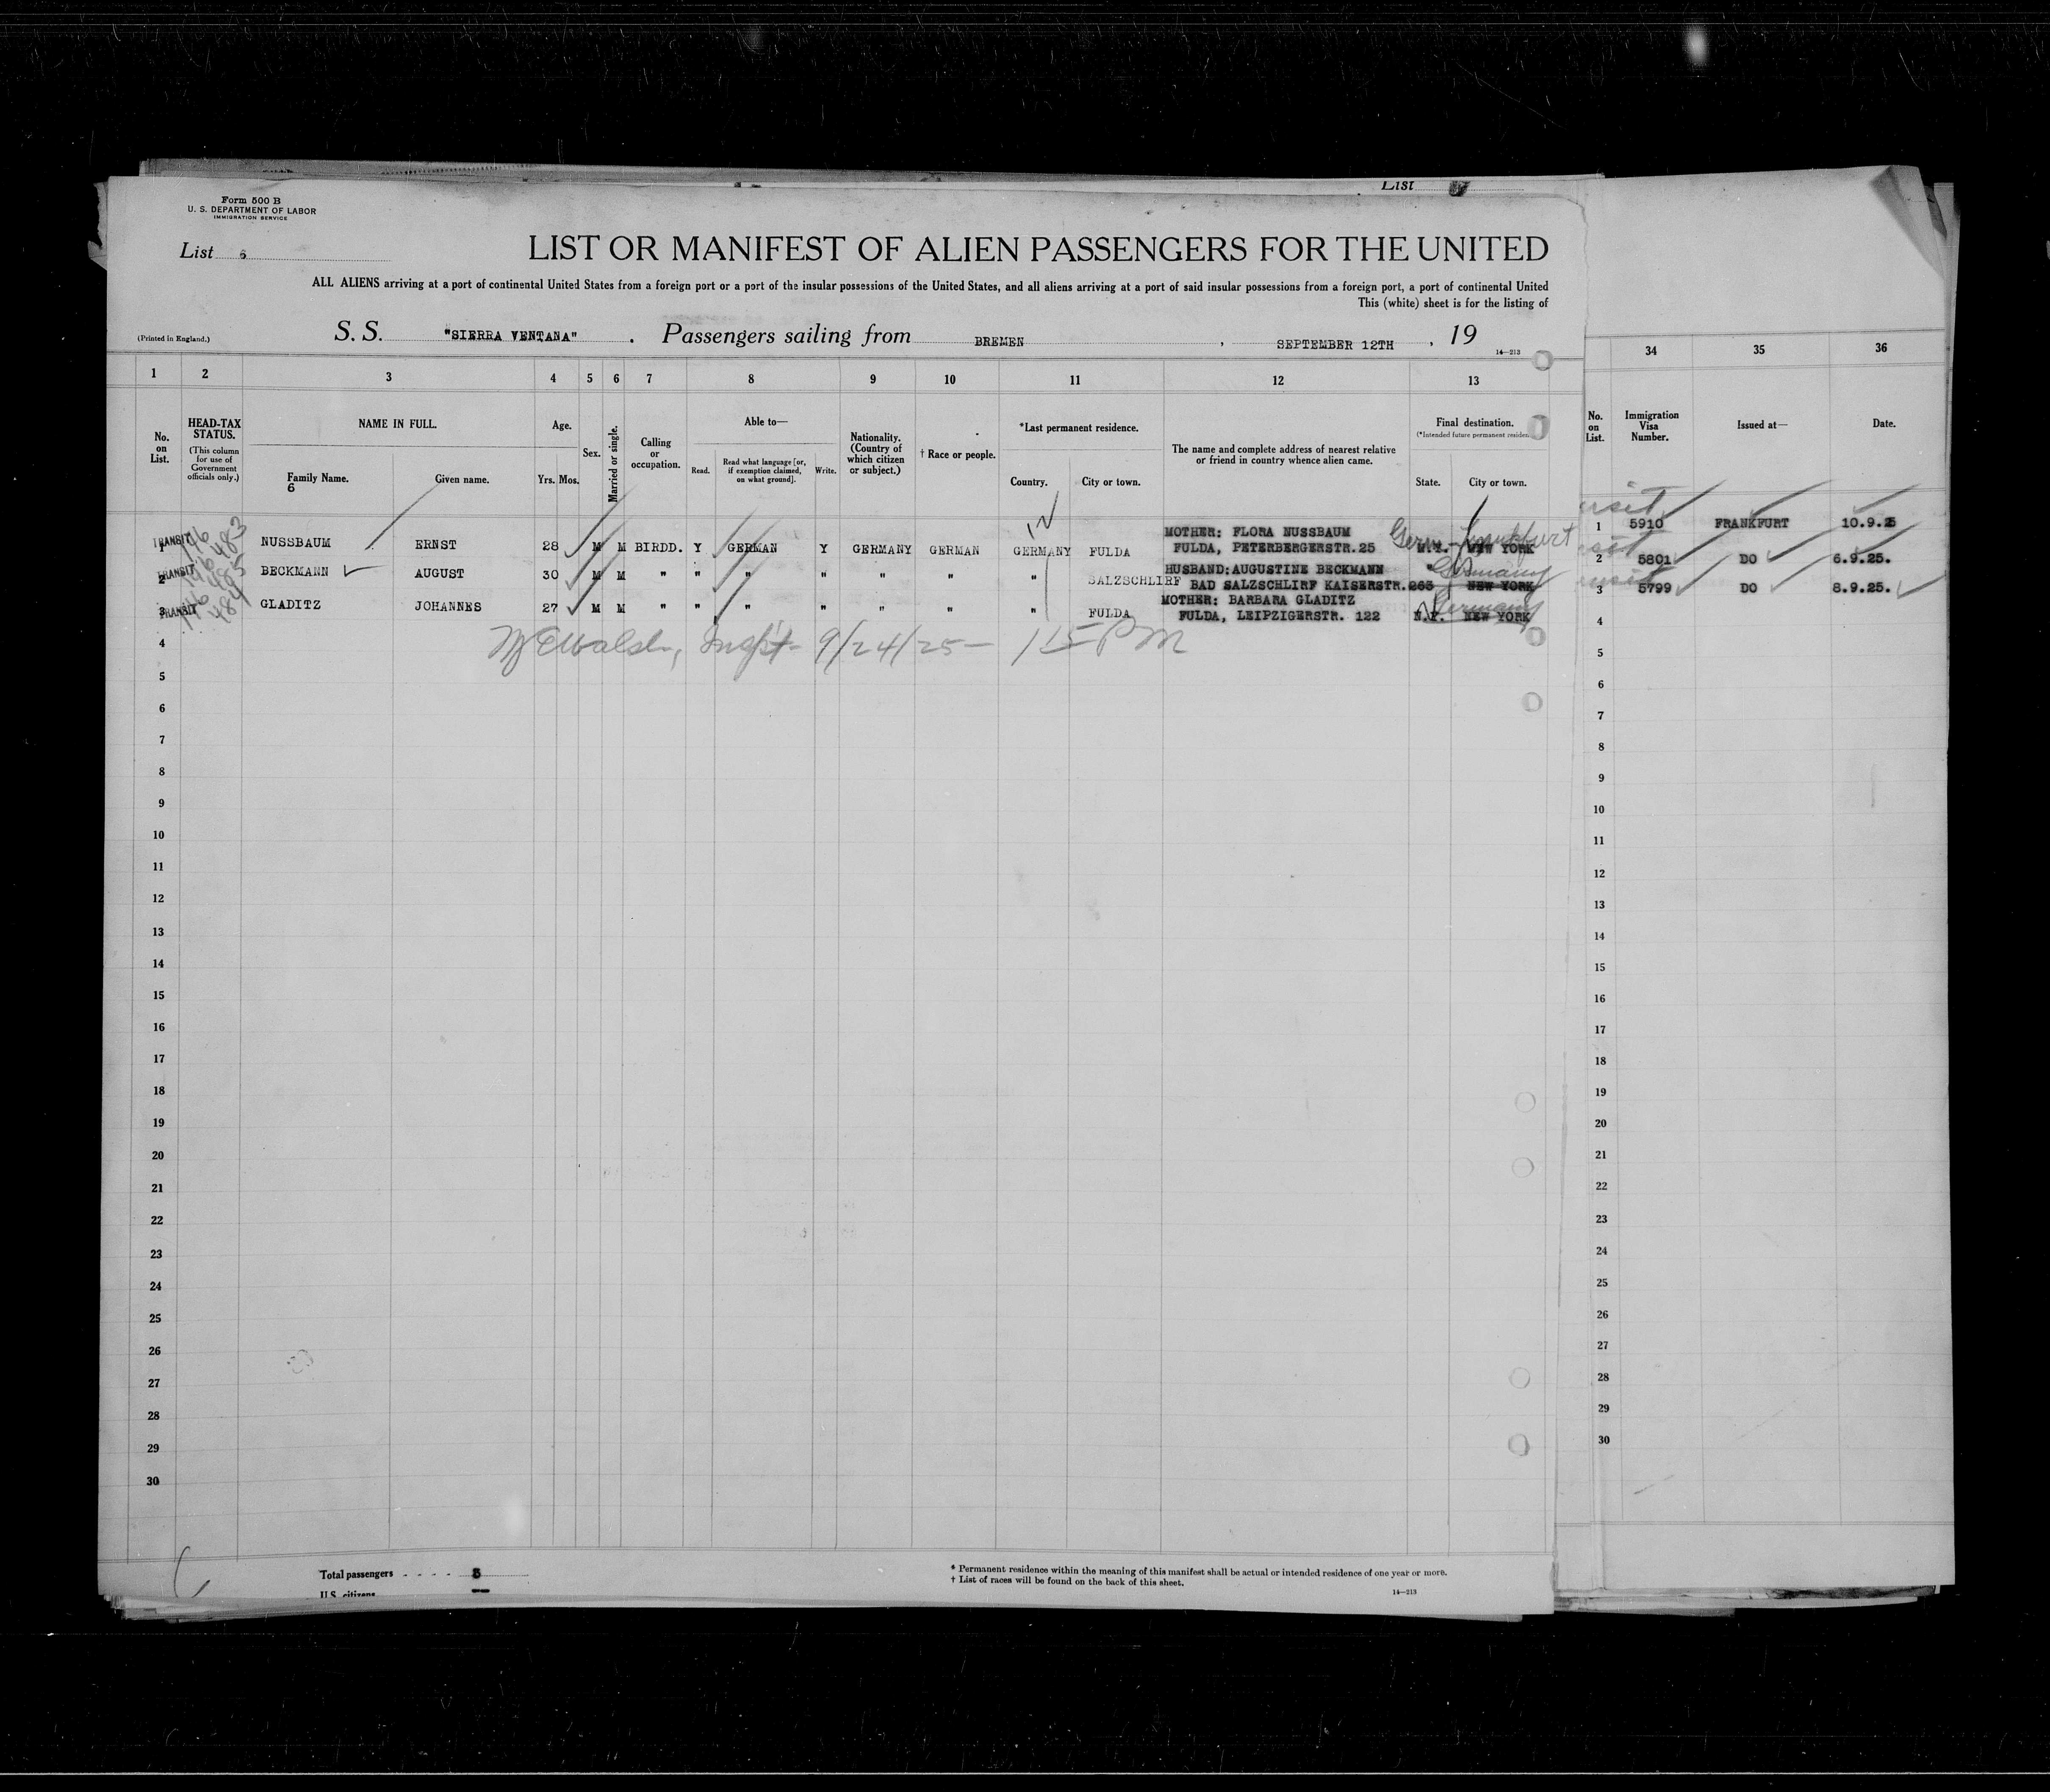 List
Form 500 B
U. S. DEPARTMENT OF LABOR
IMMIGRATION SERVICE
List 6
LIST OR MANIFEST OF ALIEN PASSENGERS FOR THE UNITED
ALL ALIENS arriving at a port of continental United States from a foreign port or a port of the insular possessions of the United States, and all aliens arriving at a port of said insular possessions from a foreign port, a port of continental United
This (white) sheet is for the listing of
(Printed in England.) S. S. "SIERRA VENTANA" . Passengers sailing from BREMEN , SEPTEMBER 12TH , 19
14—213
1 2 3 4 5 6 7 8 9 10 11 12 13 34 35 36
No. on List.
HEAD-TAX STATUS.
(This column for use of Government officials only.)
NAME IN FULL.
Family Name. Given name.
6
Age.
Yrs. Mos.
Sex.
Married or single.
Calling or occupation.
Able to—
Read. Read what language [or, if exemption claimed, on what ground]. Write.
Nationality. (Country of which citizen or subject.)
† Race or people.
*Last permanent residence.
Country. City or town.
The name and complete address of nearest relative or friend in country whence alien came.
Final destination.
(*Intended future permanent residence)
State. City or town.
No. on List.
Immigration Visa Number.
Issued at—
Date.
MOTHER: FLORA NUSSBAUM
1 TRANSIT 146 483 NUSSBAUM ERNST 28 M M BIRDD. Y GERMAN Y GERMANY GERMAN GERMANY FULDA FULDA, PETERBERGERSTR.25 N.Y. NEW YORK Germ. Frankfurt 1 5910 FRANKFURT 10.9.25
HUSBAND:AUGUSTINE BECKMANN
2 TRANSIT 146 485 BECKMANN AUGUST 30 M M " " " " " " " SALZSCHLIRF BAD SALZSCHLIRF KAISERSTR.263 " NEW YORK Germany 2 5801 DO 6.9.25.
MOTHER: BARBARA GLADITZ
3 TRANSIT 146 484 GLADITZ JOHANNES 27 M M " " " " " " " FULDA FULDA, LEIPZIGERSTR. 122 N.Y. NEW YORK Germany 3 5799 DO 8.9.25.
4 Walsh, Insp't- 9/24/25— 115 PM 4
5 5
6 6
7 7
8 8
9 9
10 10
11 11
12 12
13 13
14 14
15 15
16 16
17 17
18 18
19 19
20 20
21 21
22 22
23 23
24 24
25 25
26 26
27 27
28 28
29 29
30 30
Total passengers - - - - 3
U.S. citizens
* Permanent residence within the meaning of this manifest shall be actual or intended residence of one year or more.
† List of races will be found on the back of this sheet.
14—213